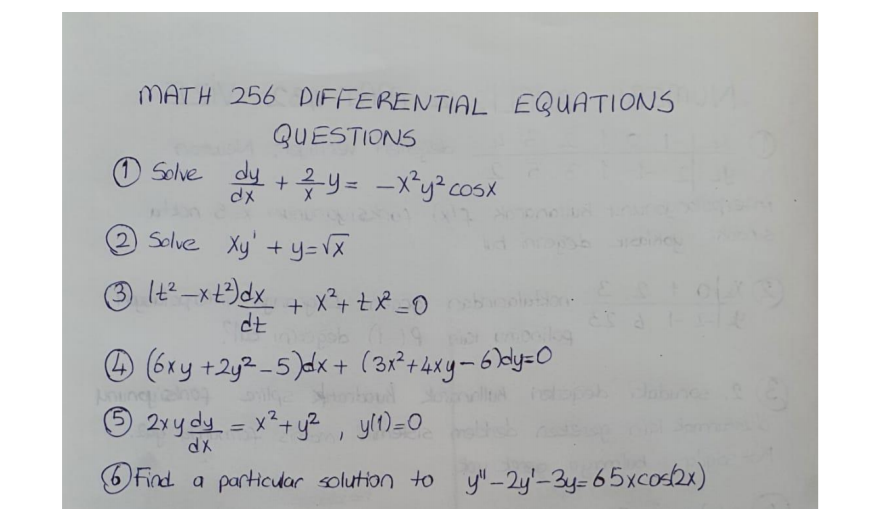 MATH 256 DIFFERENTIAL EQUATIONS
QUESTIONS
① Solve dy/dx + 2/x y = -x²y² cosx
② Solve xy' + y = √x
③ (t² - xt²)dx/dt + x² + tx² = 0
④ (6xy + 2y² - 5)dx + (3x² + 4xy - 6)dy = 0
⑤ 2xy dy/dx = x² + y² , y(1) = 0
⑥ Find a particular solution to y'' - 2y' - 3y = 65xcos(2x)